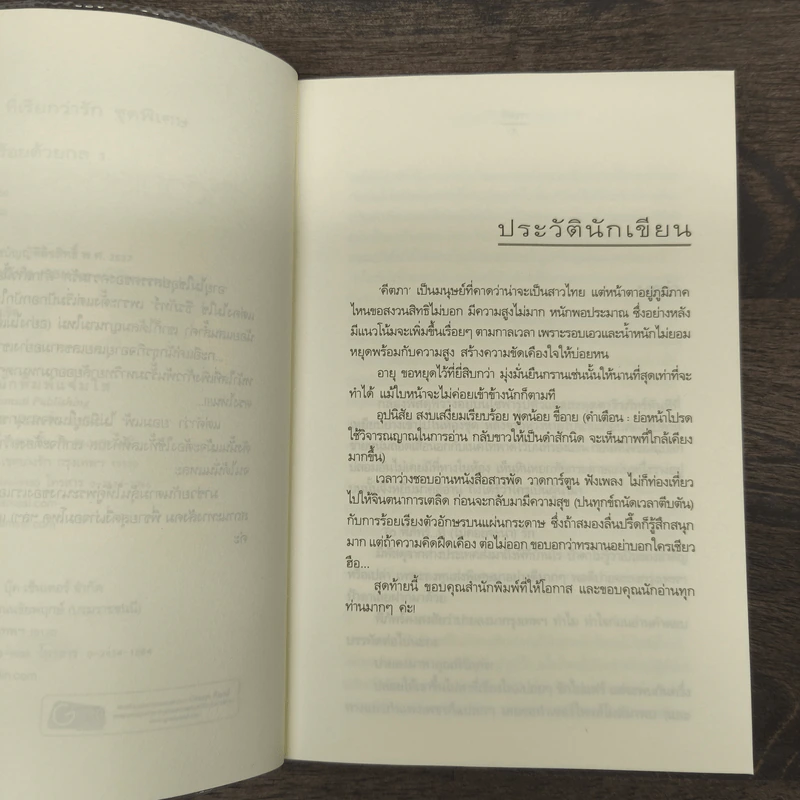 ประวัตินักเขียน
'คีตภา' เป็นมนุษย์ที่คาดว่าน่าจะเป็นสาวไทย แต่หน้าตาอยู่ภูมิภาค
ไหนขอสงวนสิทธิไม่บอก มีความสูงไม่มาก หนักพอประมาณ ซึ่งอย่างหลัง
มีแนวโน้มจะเพิ่มขึ้นเรื่อยๆ ตามกาลเวลา เพราะรอบเอวและน้ำหนักไม่ยอม
หยุดพร้อมกับความสูง สร้างความขัดเคืองใจให้บ่อยหน
อายุ ขอหยุดไว้ที่ยี่สิบกว่า มุ่งมั่นยืนกรานเช่นนั้นให้นานที่สุดเท่าที่จะ
ทำได้ แม้ใบหน้าจะไม่ค่อยเข้าข้างนักก็ตามที
อุปนิสัย สงบเสงี่ยมเรียบร้อย พูดน้อย ขี้อาย (คำเตือน : ย่อหน้าโปรด
ใช้วิจารณญาณในการอ่าน กลับขาวให้เป็นดำสักนิด จะเห็นภาพที่ใกล้เคียง
มากขึ้น)
เวลาว่างชอบอ่านหนังสือสารพัด วาดการ์ตูน ฟังเพลง ไม่ก็ท่องเที่ยว
ไปให้จินตนาการเตลิด ก่อนจะกลับมามีความสุข (ปนทุกข์ถนัดเวลาตีบตัน)
กับการร้อยเรียงตัวอักษรบนแผ่นกระดาษ ซึ่งถ้าสมองลื่นปรี๊ดก็รู้สึกสนุก
มาก แต่ถ้าความคิดฝืดเคือง ต่อไม่ออก ขอบอกว่าทรมานอย่าบอกใครเชียว
ฮือ...
สุดท้ายนี้ ขอบคุณสำนักพิมพ์ที่ให้โอกาส และขอบคุณนักอ่านทุก
ท่านมากๆ ค่ะ!